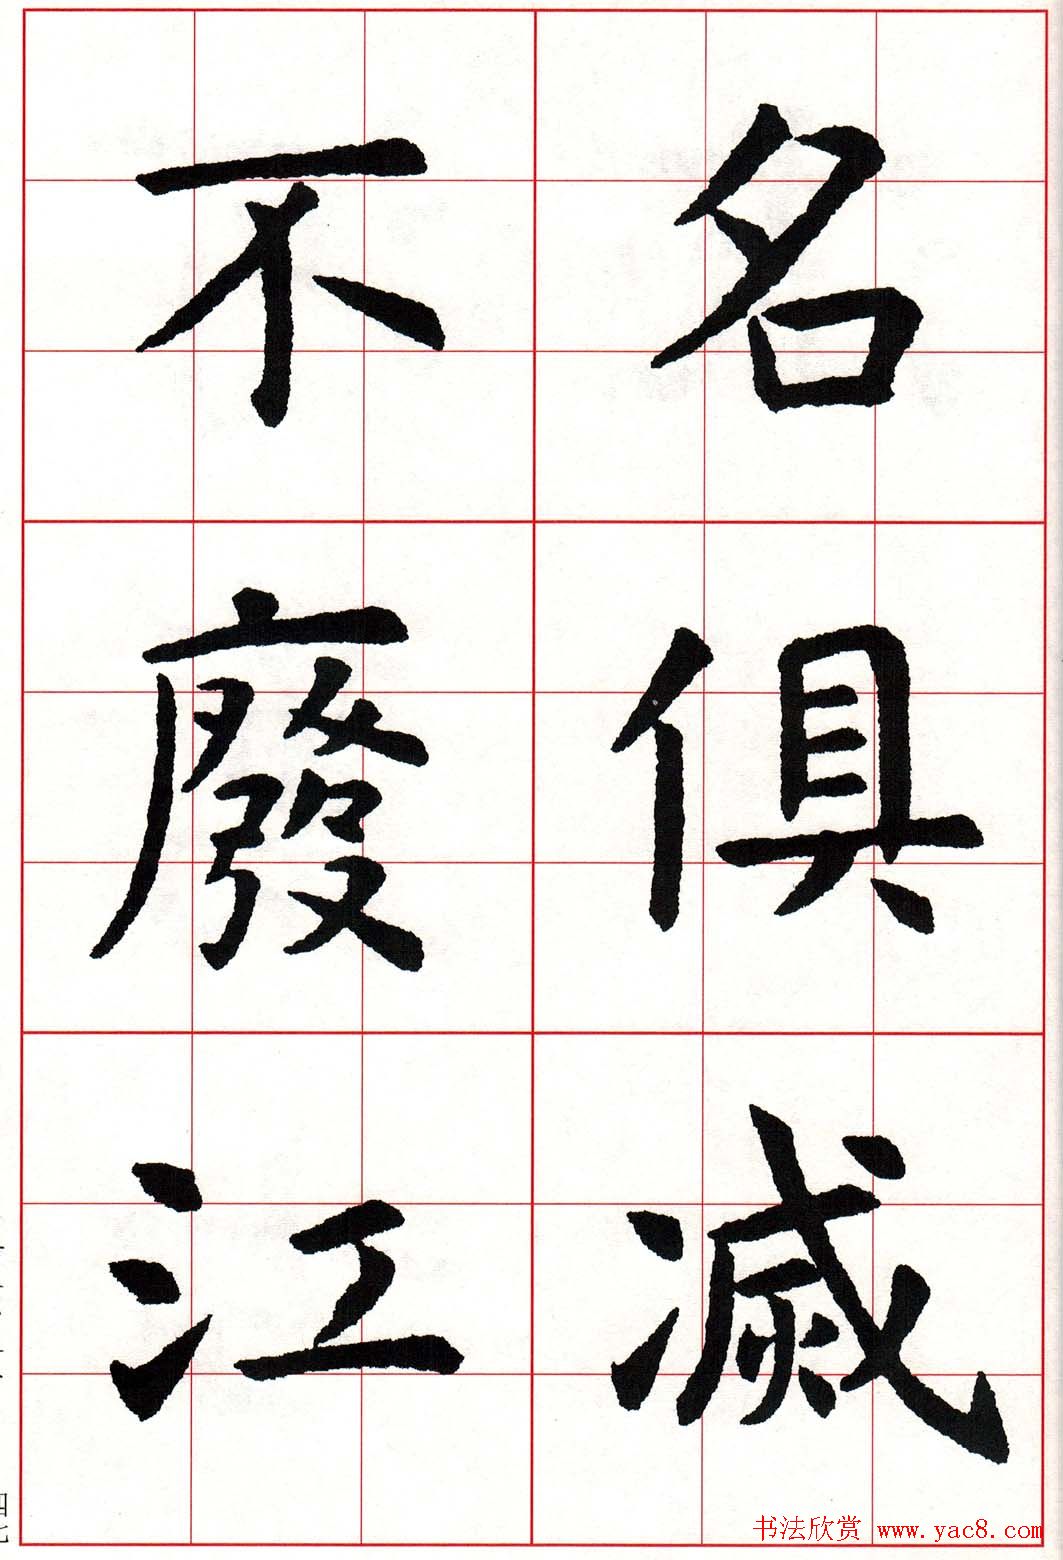 名俱滅
不廢江
四七
书法欣赏 www.yac8.com